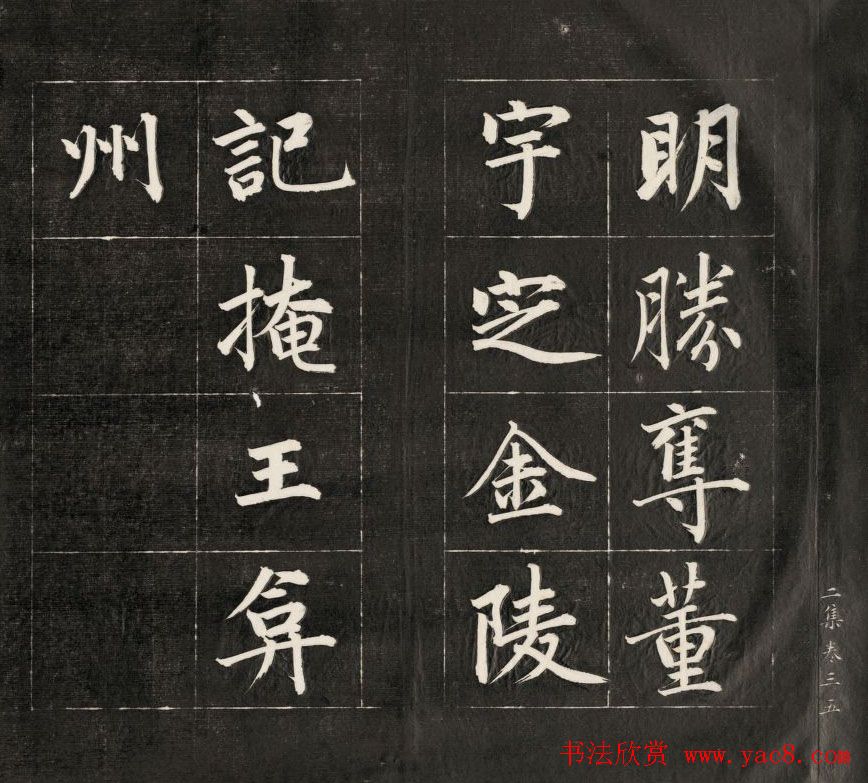 二集卷三 五
明勝奪董
宇定金陵
記掩王弇
州
书法欣赏 www.yac8.com